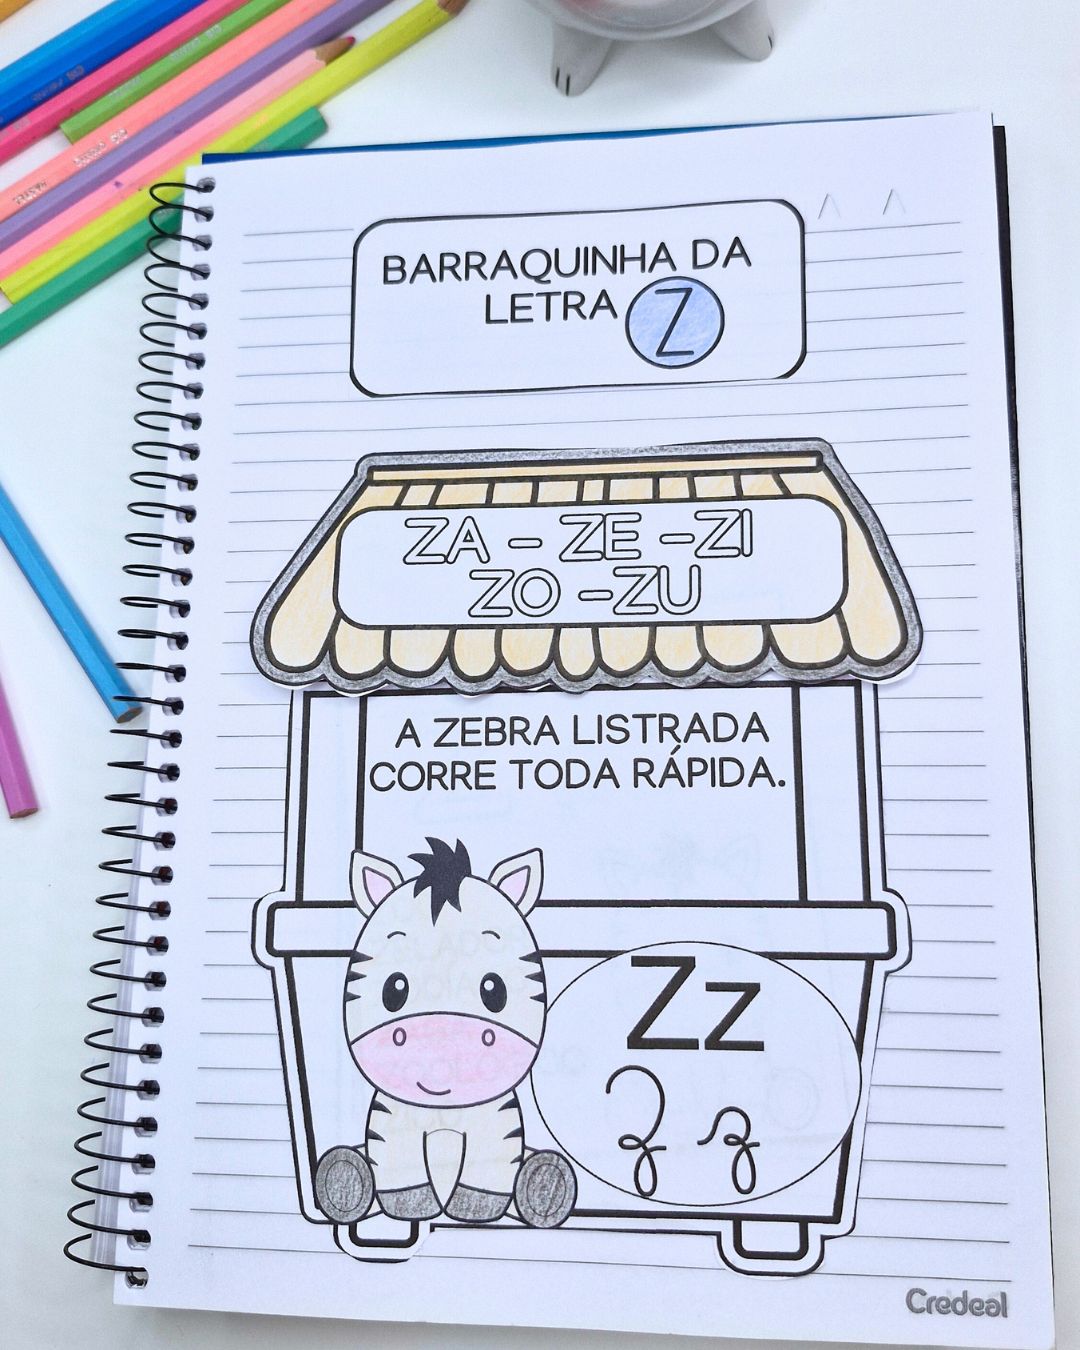 BARRAQUINHA DA
LETRA Z
ZA - ZE -ZI
ZO -ZU
A ZEBRA LISTRADA
CORRE TODA RÁPIDA.
Zz
Z z
Credeal